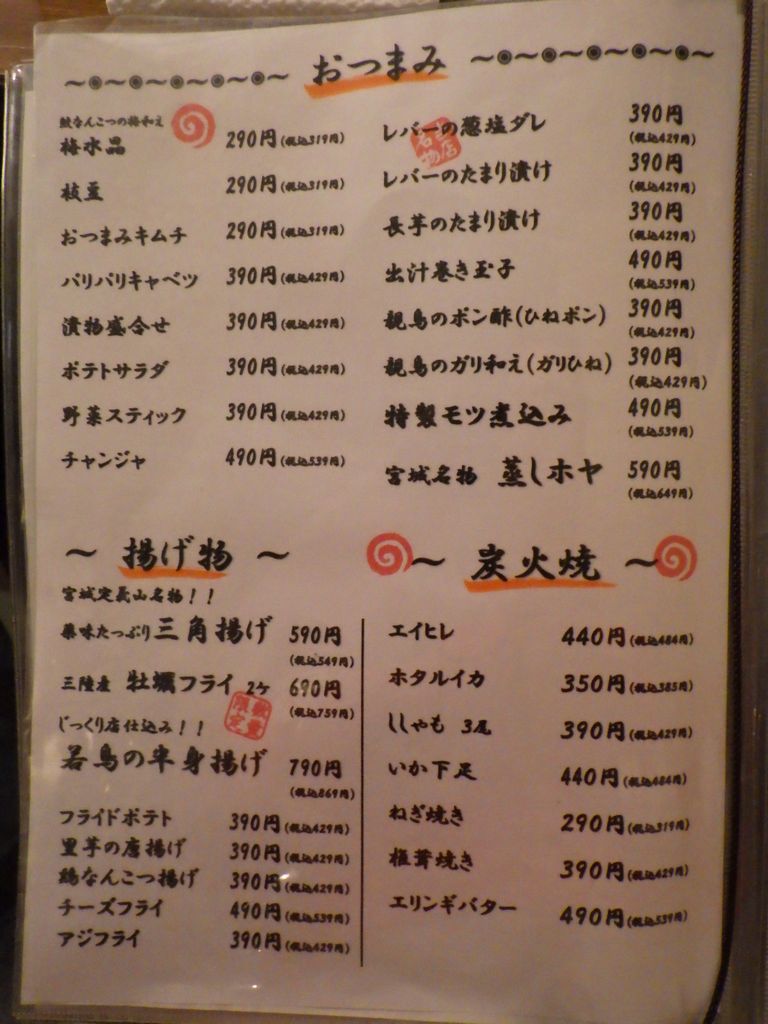 おつまみ
鮫なんこつの梅和え
梅水晶 290円(税込319円)
枝豆 290円(税込319円)
おつまみキムチ 290円(税込319円)
パリパリキャベツ 390円(税込429円)
漬物盛合せ 390円(税込429円)
ポテトサラダ 390円(税込429円)
野菜スティック 390円(税込429円)
チャンジャ 490円(税込539円)
レバーの葱塩ダレ 390円
(税込429円)
当店名物
レバーのたまり漬け 390円
(税込429円)
長芋のたまり漬け 390円
(税込429円)
出汁巻き玉子 490円
(税込539円)
親鳥のポン酢(ひねポン) 390円
(税込429円)
親鳥のガリ和え(ガリひね) 390円
(税込429円)
特製モツ煮込み 490円
(税込539円)
宮城名物 蒸しホヤ 590円
(税込649円)
〜 揚げ物 〜
宮城定義山名物！！
薬味たっぷり三角揚げ 590円
(税込549円)
三陸産 牡蠣フライ 2ケ 690円
(税込759円)
数量限定
じっくり店仕込み！！
若鳥の半身揚げ 790円
(税込869円)
フライドポテト 390円(税込429円)
里芋の唐揚げ 390円(税込429円)
鶏なんこつ揚げ 390円(税込429円)
チーズフライ 490円(税込539円)
アジフライ 390円(税込429円)
〜 炭火焼 〜
エイヒレ 440円(税込484円)
ホタルイカ 350円(税込385円)
ししゃも 3尾 390円(税込429円)
いか下足 440円(税込484円)
ねぎ焼き 290円(税込319円)
椎茸焼き 390円(税込429円)
エリンギバター 490円(税込539円)